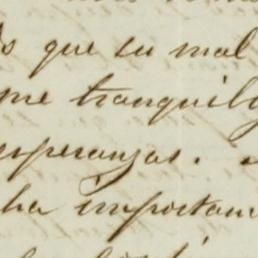 s que su mal
me tranquiliz
esperanzas.
ha importan